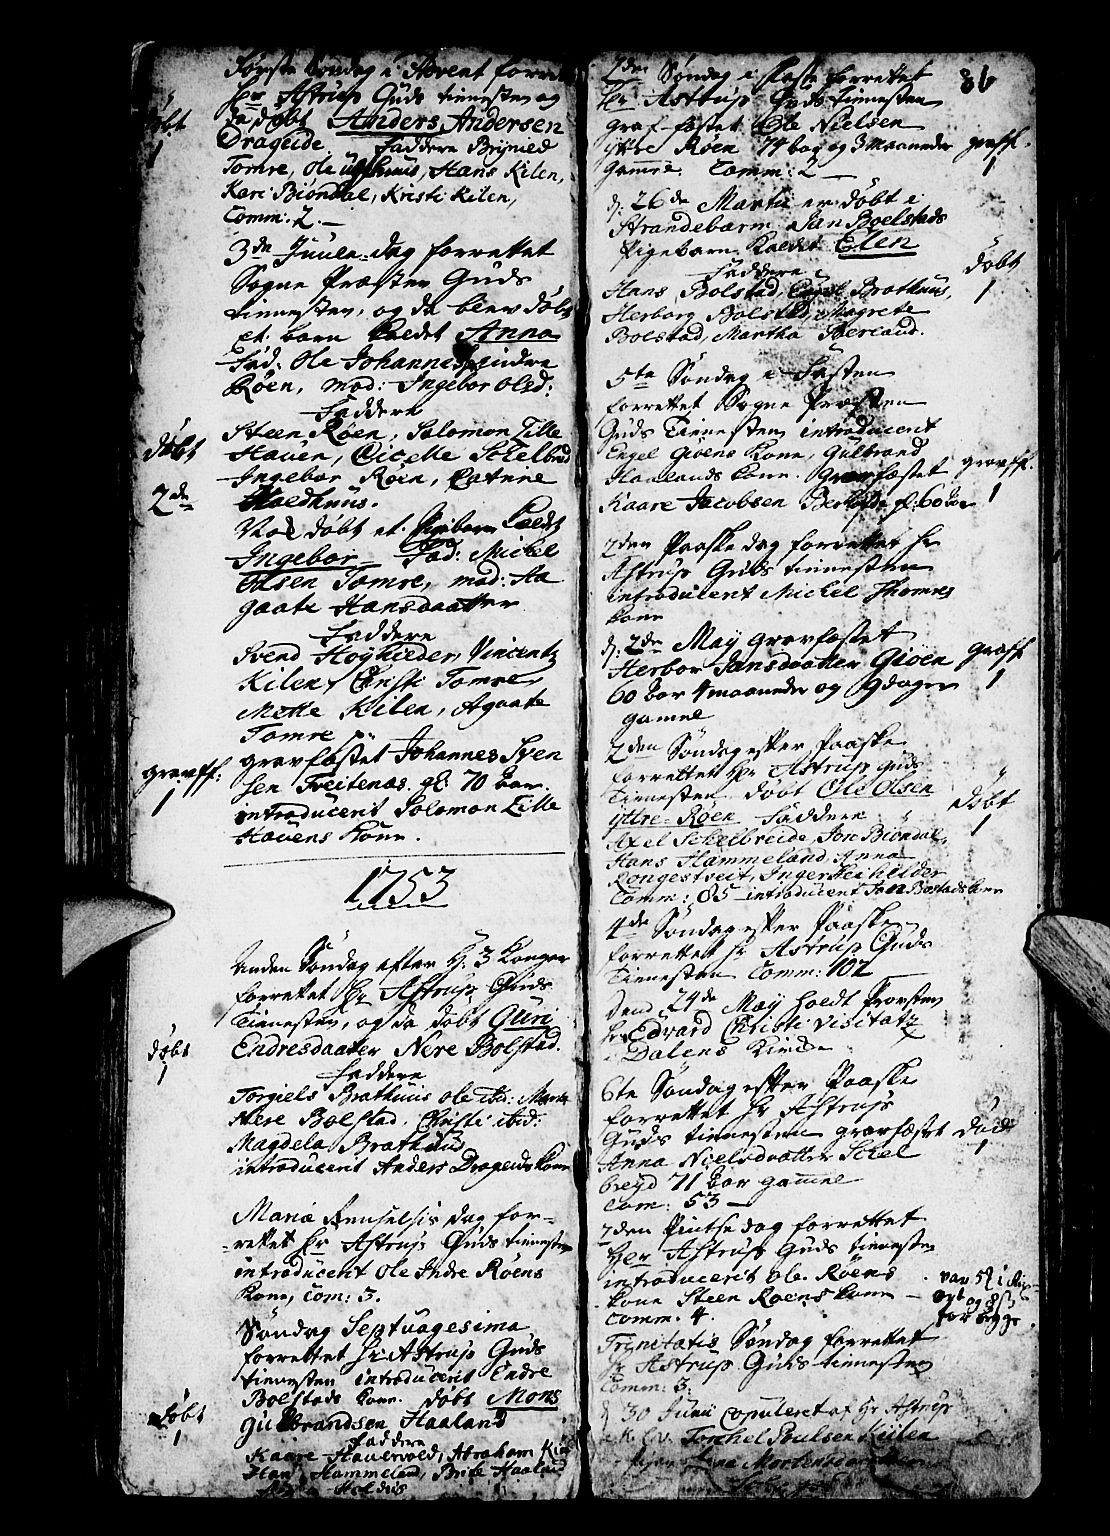 Første Søndag i Advent forrett
Hr Astrup Guds tienesten og
da døbt Anders Andersen
døbt
1
Drageide. Faddere Brynild
Tomre, Ole, Hans Kilen,
Kari Biøndal, Kristi Kilen,
Comm: 2.
3de Juule-dag forrettet
Sogne Præsten Guds
tienesten, og da blev døbt
et barn kaldet Anna
Fad: Ole Johannes indre
Røen, mod: Ingebor Olsd:
Faddere
Steen Røen, Salomon Lille
døbt
2de
Hauen, Cicelle Schelbred
Ingebor Røen, Catrine
Holdhuus.
Nock døbt et barn kaldt
Ingebor Fad: Michel
Olsen Tomre, mod: Aa
gaate Hansdaatter
Faddere
Svend Høyhilder, Vincentz
Kilen, Christi Tomre,
Mette Kilen, Agaate
Tomre
gravfæstet Johannes Sven
gravff:
1
sen Treitenas. gl 70 aar.
introducerit Salomon Lille
Havens kone.
1753
Anden Søndag efter H: 3 Konger
forrettet Hr Astrup Guds
Tienesten, og da døbt Guri
Endresdaater Nere Bolstad.
døbt
1
Faddere
Torgiels Brathuus ole ibid: Marta
Nere Bolstad, Christi ibid:
Magdela Brathuus
introducerit Anders Drageids kone
Mariæ Renselsis dag for-
rettet Hr Astrup Guds tienesten
introducerit Ole Indre Røens
kone, Com: 3.
Søndag Septuagesima
forrettet Hr Astrup Guds
tienesten introducerit Endre
Bolstads kone. døbt Mons
døbt
1
Gulbrandsen Haaland
Faddere
Kaare Hauervold, Abraham
Hans Hammeland, Brite Haaland
Holdus
36
2den Søndag i Faste forrettet
Hr Astrup Guds Tienesten
Graf-festet Ole Nielsen
yttre Røen 74 aar og 3 Maaneder
gravff.
1
Gamle. Comm: 2
d: 26de Martii er døbt i
Strandebarm Jan Boelstads
Pigebarn kaldet Elen
døbt
1
Faddere
Hans Bolstad, Brathuus,
Herborg Bolstad, Magrete
Bolstad, Martha
5te Søndag i Fasten
forrettet Sogne Præsten
Guds Tienesten introducerit
Engel Gioens kone, Gulbrand
Haalands kone. Gravfæstet
gravff.
1
Kaare Jacobsen gl: 60 aar
2den Paaskedag forrettet Hr
Astrup Guds tienesten
introducerit Michel Thomres
kone
d: 2de Maij gravfæstet
Herbor Jansdaatter Gioen
gravff
1
60 aar 4 maaneder og 9 dager
gamle
2den Søndag efter Paaske
forrettet Hr Astrup Guds
Tienesten døbt Ole Olsen
døbt
1
yttre-Røen Faddere
Axel Schelbreide, Jon Biøndal,
Hans Hammeland, Anna
Rongestveit, Inger Heihilder
Comm: 85 introducerit Jan Bostads kone
4de Søndag efter Paaske
forrettet Hr Astrup Guds
Tienesten Comm: 102
Dend 24de Maij holdt Provsten
Hr Edvard Christi visitatz
i Dalens Kirke
6te Søndag efter Paaske
forrettet Hr Astrup
Guds tienesten gravfæstet
død
1
Anna Nielsdaatter Schel
breyd 71 aar gamle
Com: 53
2den Pintsedag forrettet
Her Astrup Guds tienesten
introducerit Ole Røens
kone Steen Røens kone
Comm: 4.
Trinitatis Søndag forrettet
Hr Astrup Guds tienesten
Comm: 3.
d 30 Junii copuleret af Hr Astrup
Torchel Poulsen Kiilen
Mortensdaatter